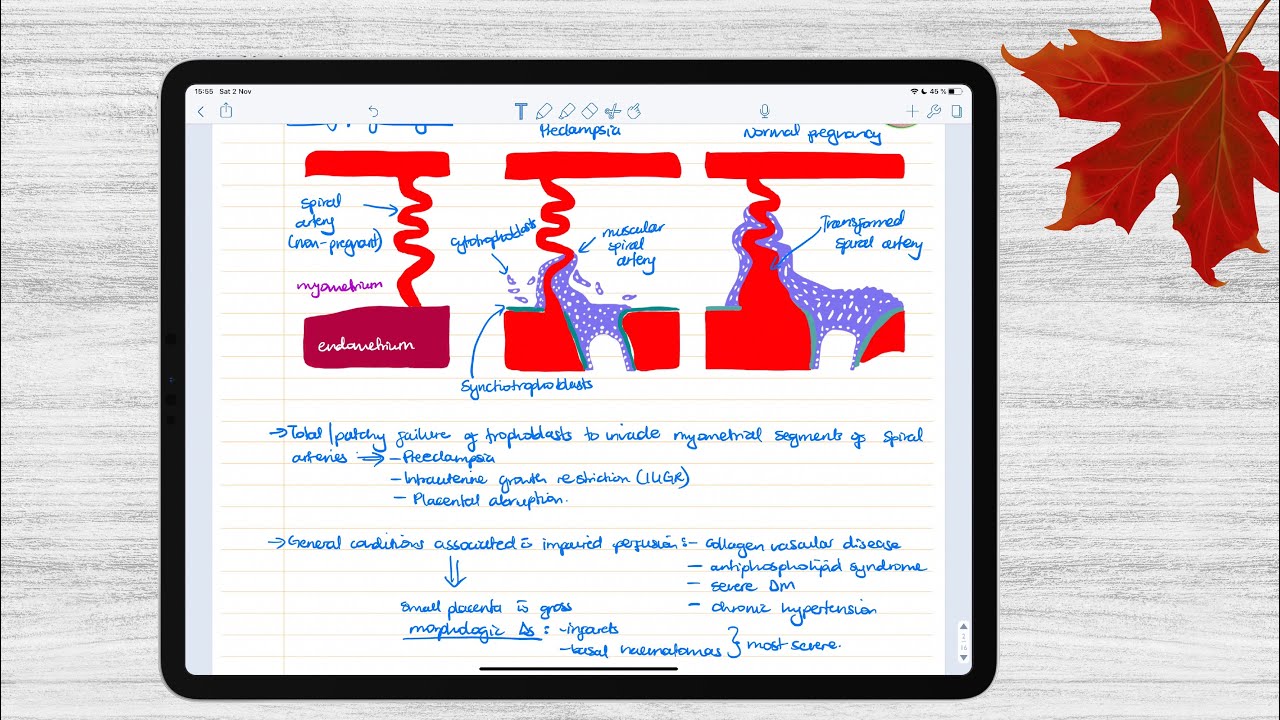 15:55 Sat 2 Nov
45 %
T
Preclampsia
Normal pregnancy
spiral
artery
(non-pregnant)
cytotrophoblasts
muscular
spiral
artery
Transformed
spiral artery
myometrium
endometrium
Synctiotrophoblasts
→ Total/patchy failure of trophoblasts to invade myometrial segments of spiral
arteries ⇒ - Preeclampsia
- Intrauterine growth restriction (IUGR)
- Placental abruption.
→ General conditions associated c̄ impaired perfusion: - collagen vascular disease
- antiphospholipid syndrome
- severe DM
- chronic hypertension
Small placenta c̄ gross
morphologic Δs : - infarcts
- basal haematomas } most severe.
2
16